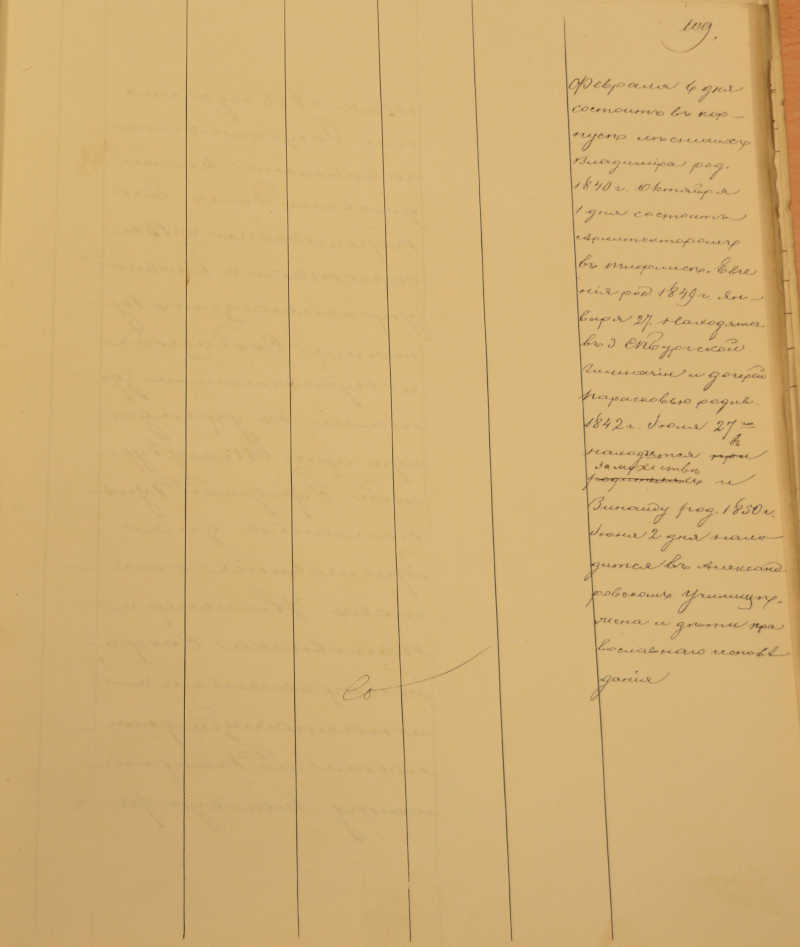 109.
Февраля 4 дня
состоитъ въ кор-
пусѣ лѣсничихъ
Владиміра род.
1840 г. Октября
1 дня состоитъ
Архитекторомъ
въ Евге
нія род 1849 г. Ян-
варя 27. находятся
въ Гимназіи и дочерей
Парасковью родив.
1842 г. Июля 27
въ
находится при
замужествѣ
родителяхъ и
Зинаиду род. 1850 г.
Июня 2 дня нахо-
дится въ Александ
ровскомъ Училищѣ.
жена и дѣти пра
вославнаго исповѣ
данія